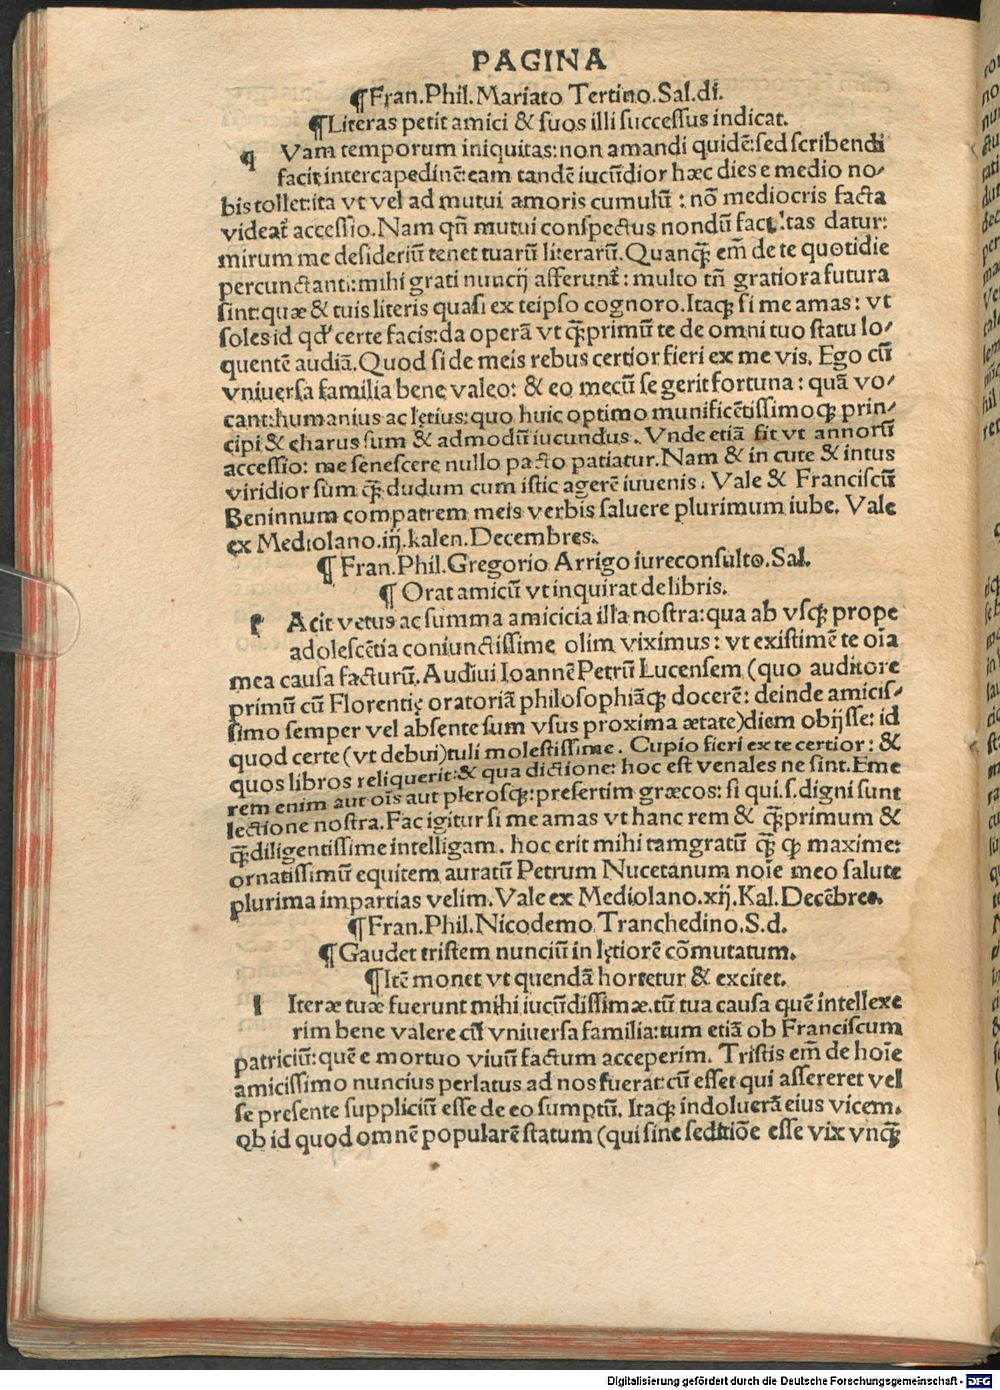 PAGINA
¶Fran.Phil.Mariato Tertino.Sal.dī.
¶Literas petit amici & ſuos illi ſucceſſus indicat.
q Vam temporum iniquitas:non amandi quidē:ſed ſcribendi
facit intercapedinē:eam tandē iucūdior hæc dies e medio no/
bis tollet:ita vt vel ad mutui amoris cumulū : nō mediocris facta
videat̃ acceſſio.Nam qñ mutui conſpectus nondū facultas datur:
mirum me deſideriū tenet tuarū literarū.Quanqꝫ em̄ de te quotidie
percunctanti:mihi grati nuncij afferunt̃ : multo tñ gratiora futura
ſint:quæ & tuis literis quaſi ex teipſo cognoro.Itaqꝫ ſi me amas: vt
ſoles id qđ certe facis:da operā vt qꝫprimū te de omni tuo ſtatu lo/
quentē audiā.Quod ſi de meis rebus certior fieri ex me vis. Ego cū
vniuerſa familia bene valeo: & eo mecū ſe gerit fortuna : quā vo/
cant:humanius ac lętius:quo huic optimo munificētiſſimoqꝫ prin/
cipi & charus ſum & admodū iucundus. Vnde etiā fit vt annorū
acceſſio: me ſeneſcere nullo pacto patiatur.Nam & in cute & intus
viridior ſum qꝫ dudum cum iſtic agerē iuuenis. Vale & Franciſcū
Beninnum compatrem meis verbis ſaluere plurimum iube. Vale
ex Mediolano.iij.kalen.Decembres.
¶ Fran.Phil.Gregorio Arrigo iureconſulto.Sal.
¶ Orat amicū vt inquirat de libris.
f Acit vetus ac ſumma amicicia illa noſtra:qua ab vſqꝫ prope
adoleſcētia coniunctiſſime olim viximus: vt exiſtimē te oīa
mea cauſa facturū.Audiui Ioannē Petrū Lucenſem (quo auditore
primū cū Florentię oratoriā philoſophiāqꝫ docerē: deinde amiciſ/
ſimo ſemper vel abſente ſum vſus proxima ætate)diem obijſſe: id
quod certe (vt debui)tuli moleſtiſſime. Cupio fieri ex te certior: &
quos libros reliquerit:& qua dictione: hoc eſt venales ne ſint.Eme
rem enim aut oīs aut pleroſqꝫ:preſertim græcos: ſi qui.ſ.digni ſunt
lectione noſtra.Fac igitur ſi me amas vt hanc rem & qꝫprimum &
qꝫdiligentiſſime intelligam. hoc erit mihi tamgratū qꝫ ꝙ maxime:
ornatiſſimū equitem auratū Petrum Nucetanum noīe meo ſalute
plurima impartias velim.Vale ex Mediolano.xij.Kal.Decēbres.
¶Fran.Phil.Nicodemo Tranchedino.S.d.
¶Gaudet triſtem nunciū in lętiorē cōmutatum.
¶Itē monet vt quendā hortetur & excitet.
l Iteræ tuæ fuerunt mihi iucūdiſſimæ.tū tua cauſa quē intellexe
rim bene valere cū vniuerſa familia:tum etiā ob Franciſcum
patriciū:quē e mortuo viuū factum acceperim. Triſtis em̄ de hoīe
amiciſſimo nuncius perlatus ad nos fuerat:cū eſſet qui aſſereret vel
ſe preſente ſuppliciū eſſe de eo ſumptū. Itaqꝫ indoluerā eius vicem.
Ob id quod omnē popularē ſtatum (qui ſine ſeditiōe eſſe vix vnqꝫ
Digitalisierung gefördert durch die Deutsche Forschungsgemeinschaft - DFG